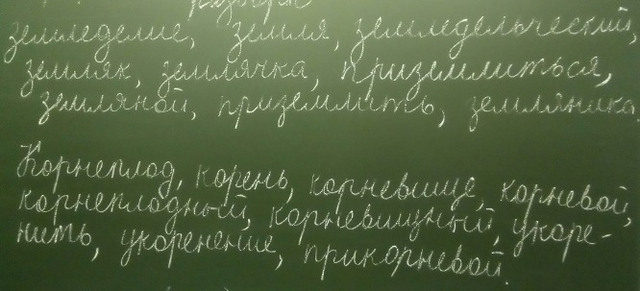 разбери
земледелие, земля, земледельческий,
земляк, землячка, приземлиться,
земляной, приземлить, земляника.
Корнеплод, корень, корневище, корневой,
корнеплодный, корневищный, укоре-
нить, укоренение, прикорневой.